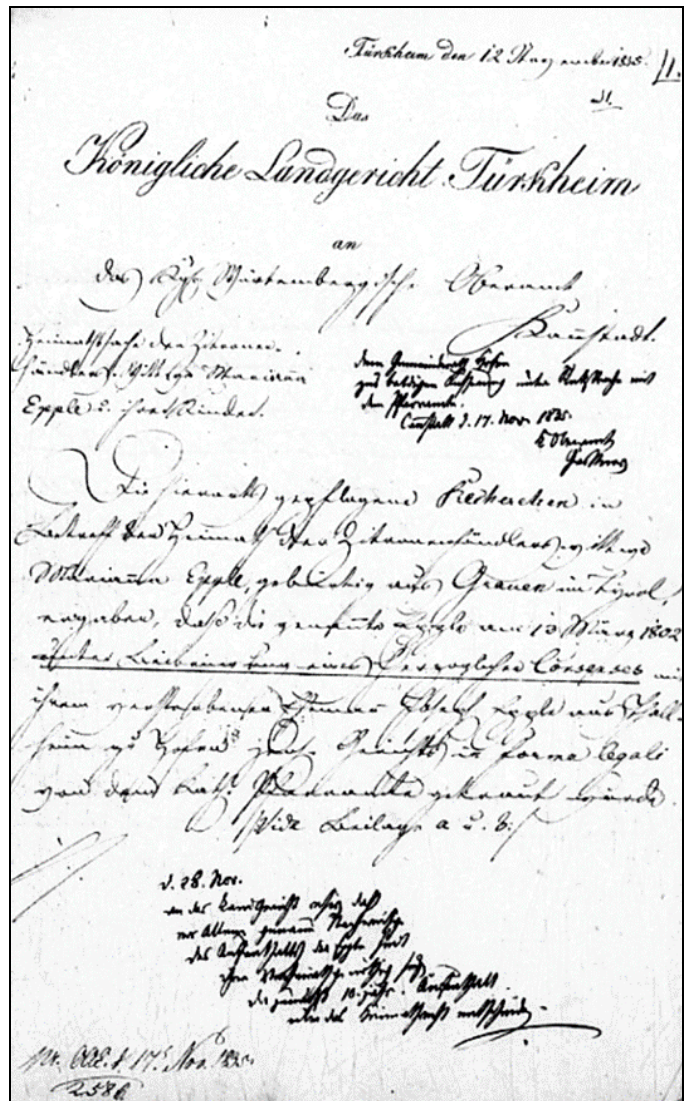 Türkheim den 12 November 1835.
Das
Königliche Landgericht Türkheim
an
das Kgl. Würtembergische Oberamt
Kannstadt.
Heimathsache der Zitronen-
händlers Wittwe Marianna
Epple u. ihrer Kinder.
dem Gemeinderath Hofen
zur baldigen unter Rücksprache mit
dem Pfarramte.
Cannstatt d. 17. Nov. 1835.
K Oberamt
Die hierorts gepflogene Recherchen in
Betreff der Heimath der Zitronenhändlers Wittwe
Marianna Epple, gebürtig aus Graven im Tyrol,
ergaben, daß die genannte Epple am 13 März 1802
unter Beibringung eines Herzoglichen Consenses mit
ihrem verstorbenen Ehemann Joseph Epple aus Thall-
heim zu Hofen Gerichts in forma legali
von dem kath. Pfarramte getraut wurde.
/:Vide Beilage a u. b:/
d. 28. Nov.
an das Landgericht daß
vor Allem genaue
des Aufenthalts der Epple und
10. jähr. Aufenthalt
über das Heimathrecht entscheide.
17. Nov. 1835.
2586